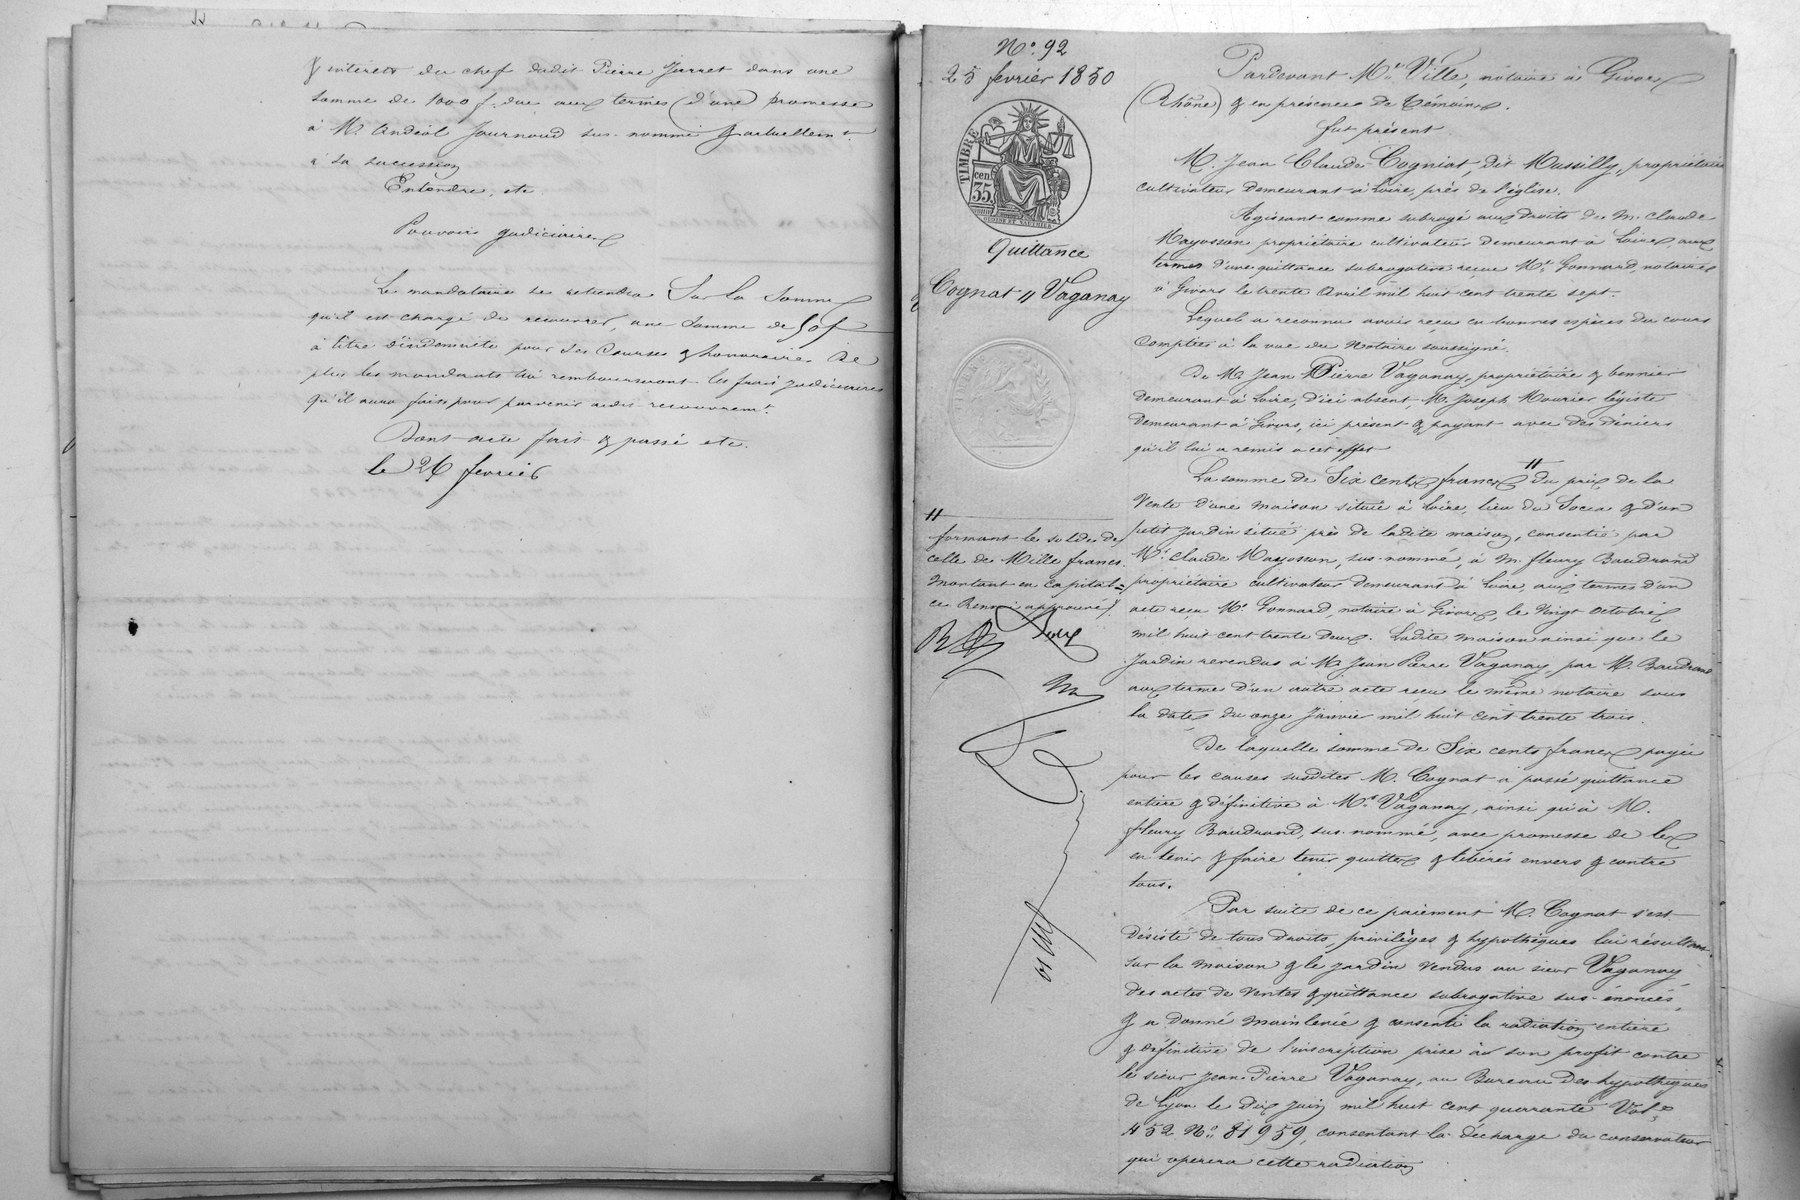 & intérets du chef dudit Pierre Jurret dans une
somme de 1000 f. due aux termes d'une promesse
à M. Andéol Journoud sus-nommé & actuellemt.
à sa succession
Entendre, etc
Pouvoirs judiciaires
Le mandataire se retiendra sur la somme
qu'il est chargé de recouvrer, une somme de 50 f
à titre d'indemnité pour ses courses & honoraires. De
plus les mandants lui rembourseront les frais judiciaires
qu'il aura faits pour parvenir audit recouvremt.
Dont acte fait & passé etc.
le 26 fevrier
No. 92
25 fevrier 1850
TIMBRE
cen
35
Quittance
Cognat // Vaganay
//
formant le solde de
celle de Mille francs
montant en capital =
ce Renvoi approuvé /.
Pardevant Me. Ville, notaire à Givors
(Rhône) & en présence de témoins.
fut présent
M. Jean Claude Cogniat, dit Massilly, propriétaire
cultivateur demeurant à Loire, près de l'église.
Agissant comme subrogé aux droits de M. Claude
Mayosson propriétaire cultivateur demeurant à Loire, aux
termes d'une quittance subrogative reçue Me. Gonnard, notaire
à Givors le trente Avril mil huit cent trente sept.
Lequel a reconnu avoir reçu en bonnes espèces du cours
Comptées à la vue du Notaire soussigné.
De M. Jean Pierre Vaganay, propriétaire & bennier
demeurant à Loire, d'ici absent, M. Joseph Mourier légiste
demeurant à Givors, ici présent & payant avec des deniers
qu'il lui a remis a cet effet
La somme de Six cents francs // du prix de la
Vente d'une maison située à Loire, lieu du Socea & d'un
petit Jardin situé près de ladite maison, consentie par
M. Claude Mayosson, sus-nommé, à M. fleury Baudrand
propriétaire cultivateur demeurant à Loire, aux termes d'un
acte reçu Me Gonnard, notaire à Givors, le vingt octobre
mil huit cent trente deux. Ladite maison ainsi que le
Jardin revendus à M. Jean Pierre Vaganay, par M. Baudrand
aux termes d'un autre acte reçu le même notaire sous
la date du onze Janvier mil huit cent trente trois.
De laquelle somme de Six cents francs payée
pour les causes susdites M. Cognat a passé quittance
entière & définitive à M. Vaganay, ainsi qu'à M.
fleury Baudrand, sus-nommé, avec promesse de les
en tenir & faire tenir quittes & libérés envers & contre
tous.
Par suite de ce paiement M. Cognat s'est
désisté de tous droits, privilèges & hypothèques lui résultant
sur la maison & le jardin vendus au sieur Vaganay
des actes de ventes & quittance subrogative sus-énoncés,
& a donné mainlevée & consenti la radiation entière
& définitive de l'inscription prise à son profit contre
le sieur Jean-Pierre Vaganay, au Bureau des hypothèques
de Lyon le dix Juin mil huit cent quarante Vol.
452 No. 81959, consentant la décharge du conservateur
qui opérera cette radiation